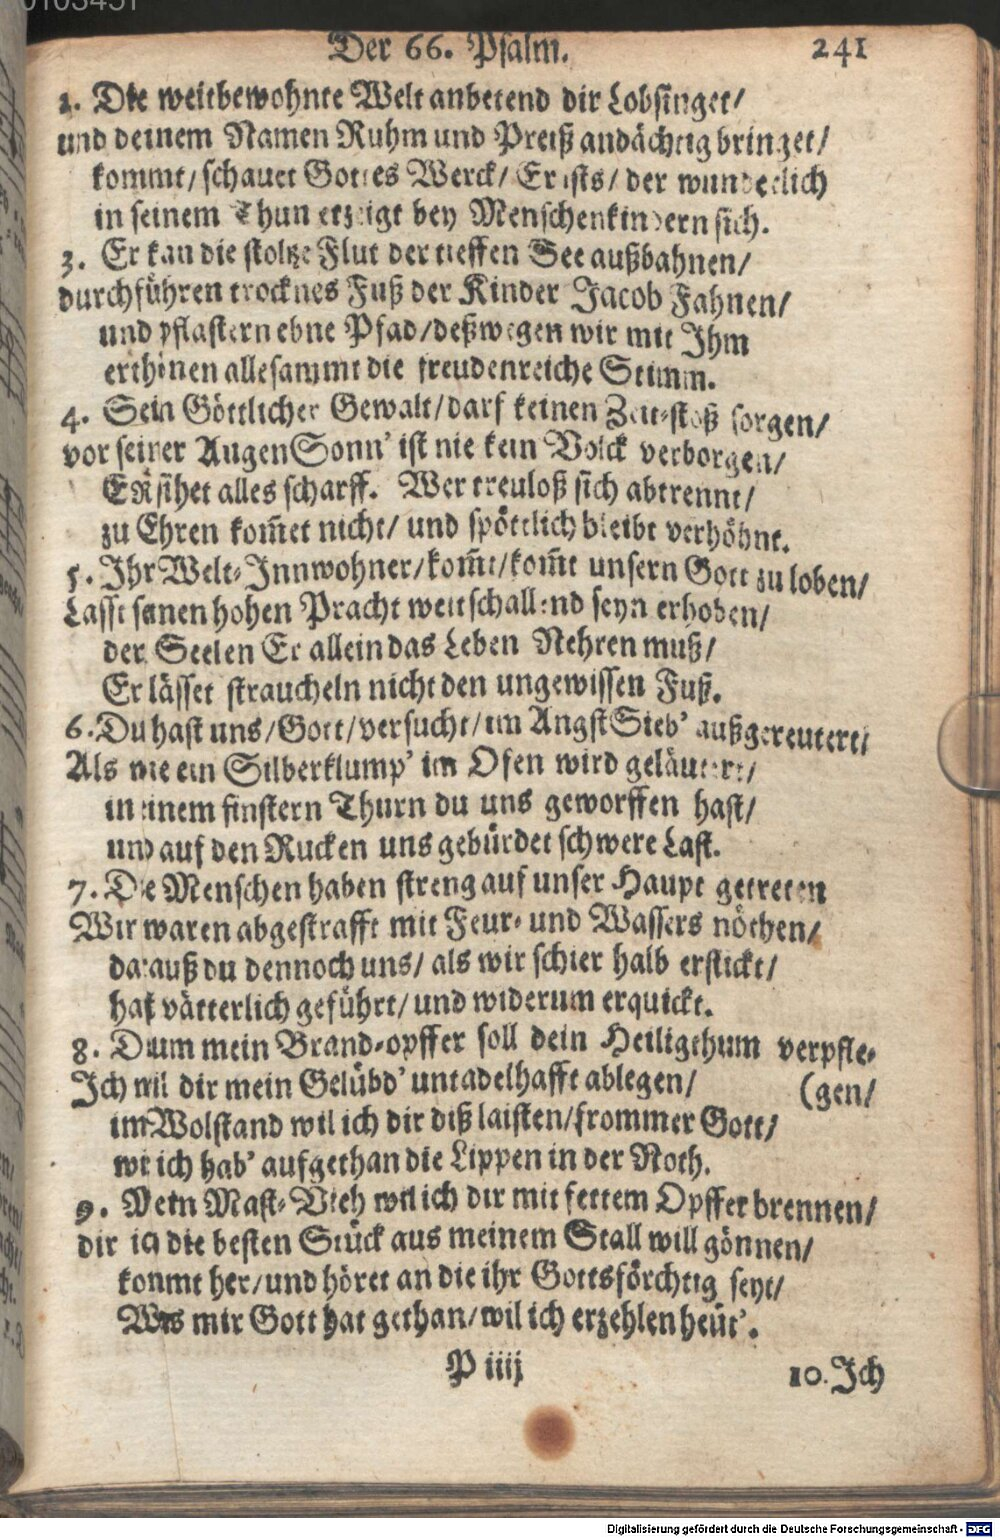 0103451
Der 66. Psalm. 241
2. Die weitbewohnte Welt anbetend dir Lobsinget/
und deinem Namen Ruhm und Preiß andächtig bringet/
kommt/ schauet Gottes Werck/ Er ists/ der wunderlich
in seinem Thun erzeigt bey Menschenkindern sich.
3. Er kan die stoltze Flut der tieffen See außbahnen/
durchführen trocknes Fuß der Kinder Jacob Fahnen/
und pflastern ebne Pfad/ deßwegen wir mit Ihm
erthönen allesammt die freudenreiche Stimm.
4. Sein Göttlicher Gewalt/ darf keinen Zeit-stoß sorgen/
vor seiner Augen Sonn' ist nie kein Volck verborgen/
ER sihet alles scharff. Wer treuloß sich abtrennt/
zu Ehren kom̃et nicht/ und spöttlich bleibt verhöhnt.
5. Ihr Welt-Innwohner/ kom̃t/ kom̃t unsern Gott zu loben/
Lasst seinen hohen Pracht weitschallend seyn erhoben/
der Seelen Er allein das Leben Nehren muß/
Er lässet straucheln nicht den ungewissen Fuß.
6. Du hast uns/ Gott/ versucht/ im Angst Sieb' außgereutert/
Als wie ein Silberklump' im Ofen wird geläutert/
in einem finstern Thurn du uns geworffen hast/
und auf den Rucken uns gebürdet schwere Last.
7. Die Menschen haben streng auf unser Haupt getreten
Wir waren abgestrafft mit Feur- und Wassers nöthen/
darauß du dennoch uns/ als wir schier halb erstickt/
hast vätterlich geführt/ und widerum erquickt.
8. Drum mein Brand-opffer soll dein Heiligthum verpfle-
Ich wil dir mein Gelübd' untadelhafft ablegen/ (gen/
im Wolstand wil ich dir diß laisten/ frommer Gott/
wie ich hab' aufgethan die Lippen in der Noth.
9. Mein Mast-Vieh wil ich dir mit fettem Opffer brennen/
dir ja die besten Stück aus meinem Stall will gönnen/
kommt her/ und höret an die ihr Gottsförchtig seyt/
Was mir Gott hat gethan/ wil ich erzehlen heüt'.
P iiij 10. Ich
Digitalisierung gefördert durch die Deutsche Forschungsgemeinschaft - DFG